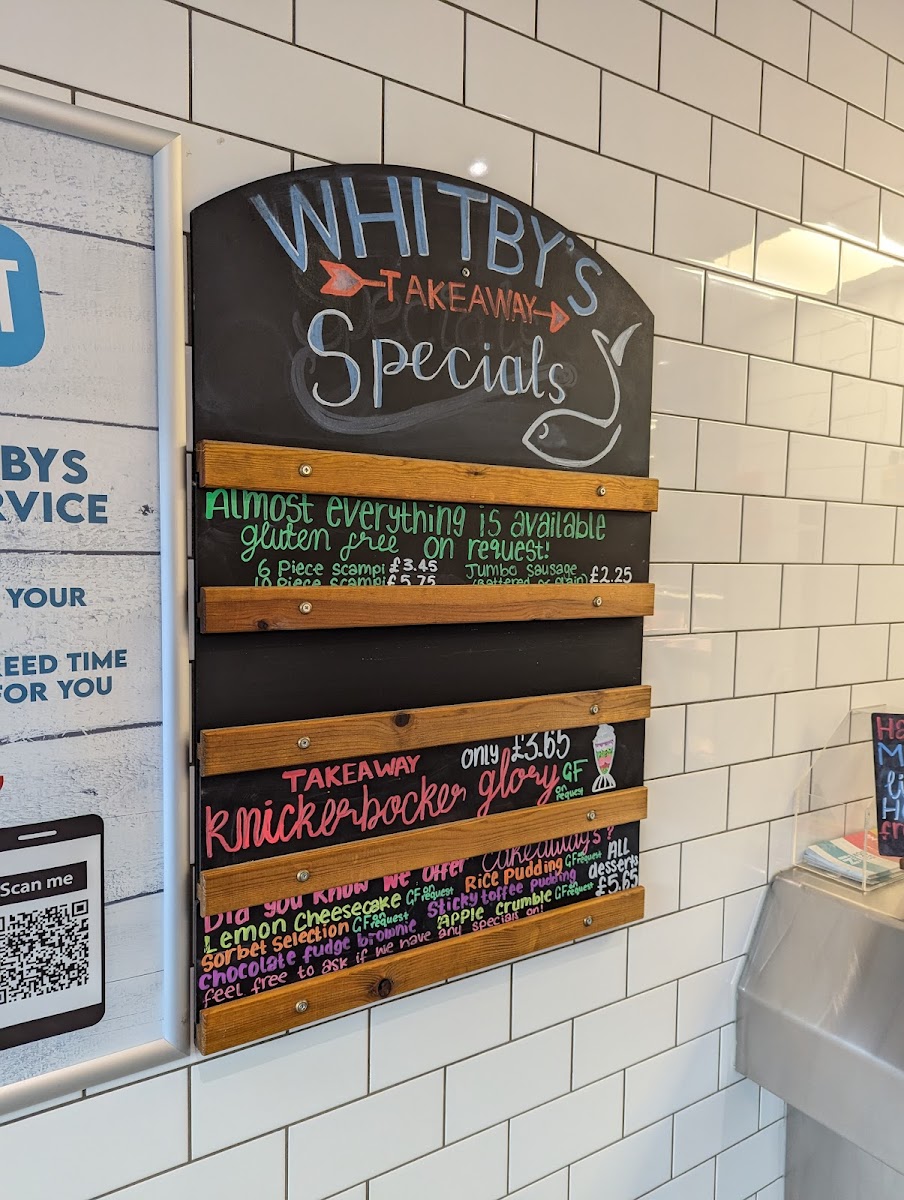 WHITBY'S
TAKEAWAY
Specials
Almost everything is available
gluten free on request!
6 Piece scampi £3.45
10 Piece scampi £5.75
Jumbo Sausage
(Battered or plain) £2.25
TAKEAWAY only £3.65
Knickerbocker glory GF on request
Did you know we offer takeaways?
Lemon Cheesecake GF on request Rice Pudding GF request ALL
Sorbet Selection GF on request Sticky toffee pudding desserts
Chocolate fudge brownie Apple crumble GF request £5.65
feel free to ask if we have any specials on!
T
BYS
RVICE
YOUR
REED TIME
FOR YOU
Scan me